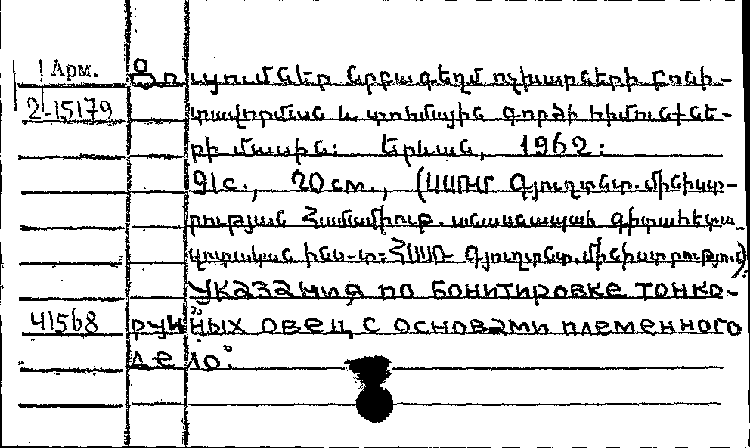 Арм. Ցուցումներ նրբագեղմ ոչխարների բոնի-
2-15179 տավորման և տոհմային գործի հիմունքնե-
րի մասին: Երևան, 1962:
91с., 20 см., (ՍՍՌՄ Գյուղտնտ. մինիստ-
րության Համամիութ. անասնապահ. գիտահետա
զոտական ինս-տ: ՀՍՍՌ Գյուղտնտ. մինիստրություն)
Указания по бонитировке тонко-
41568 рунных овец с основами племенного
дело.